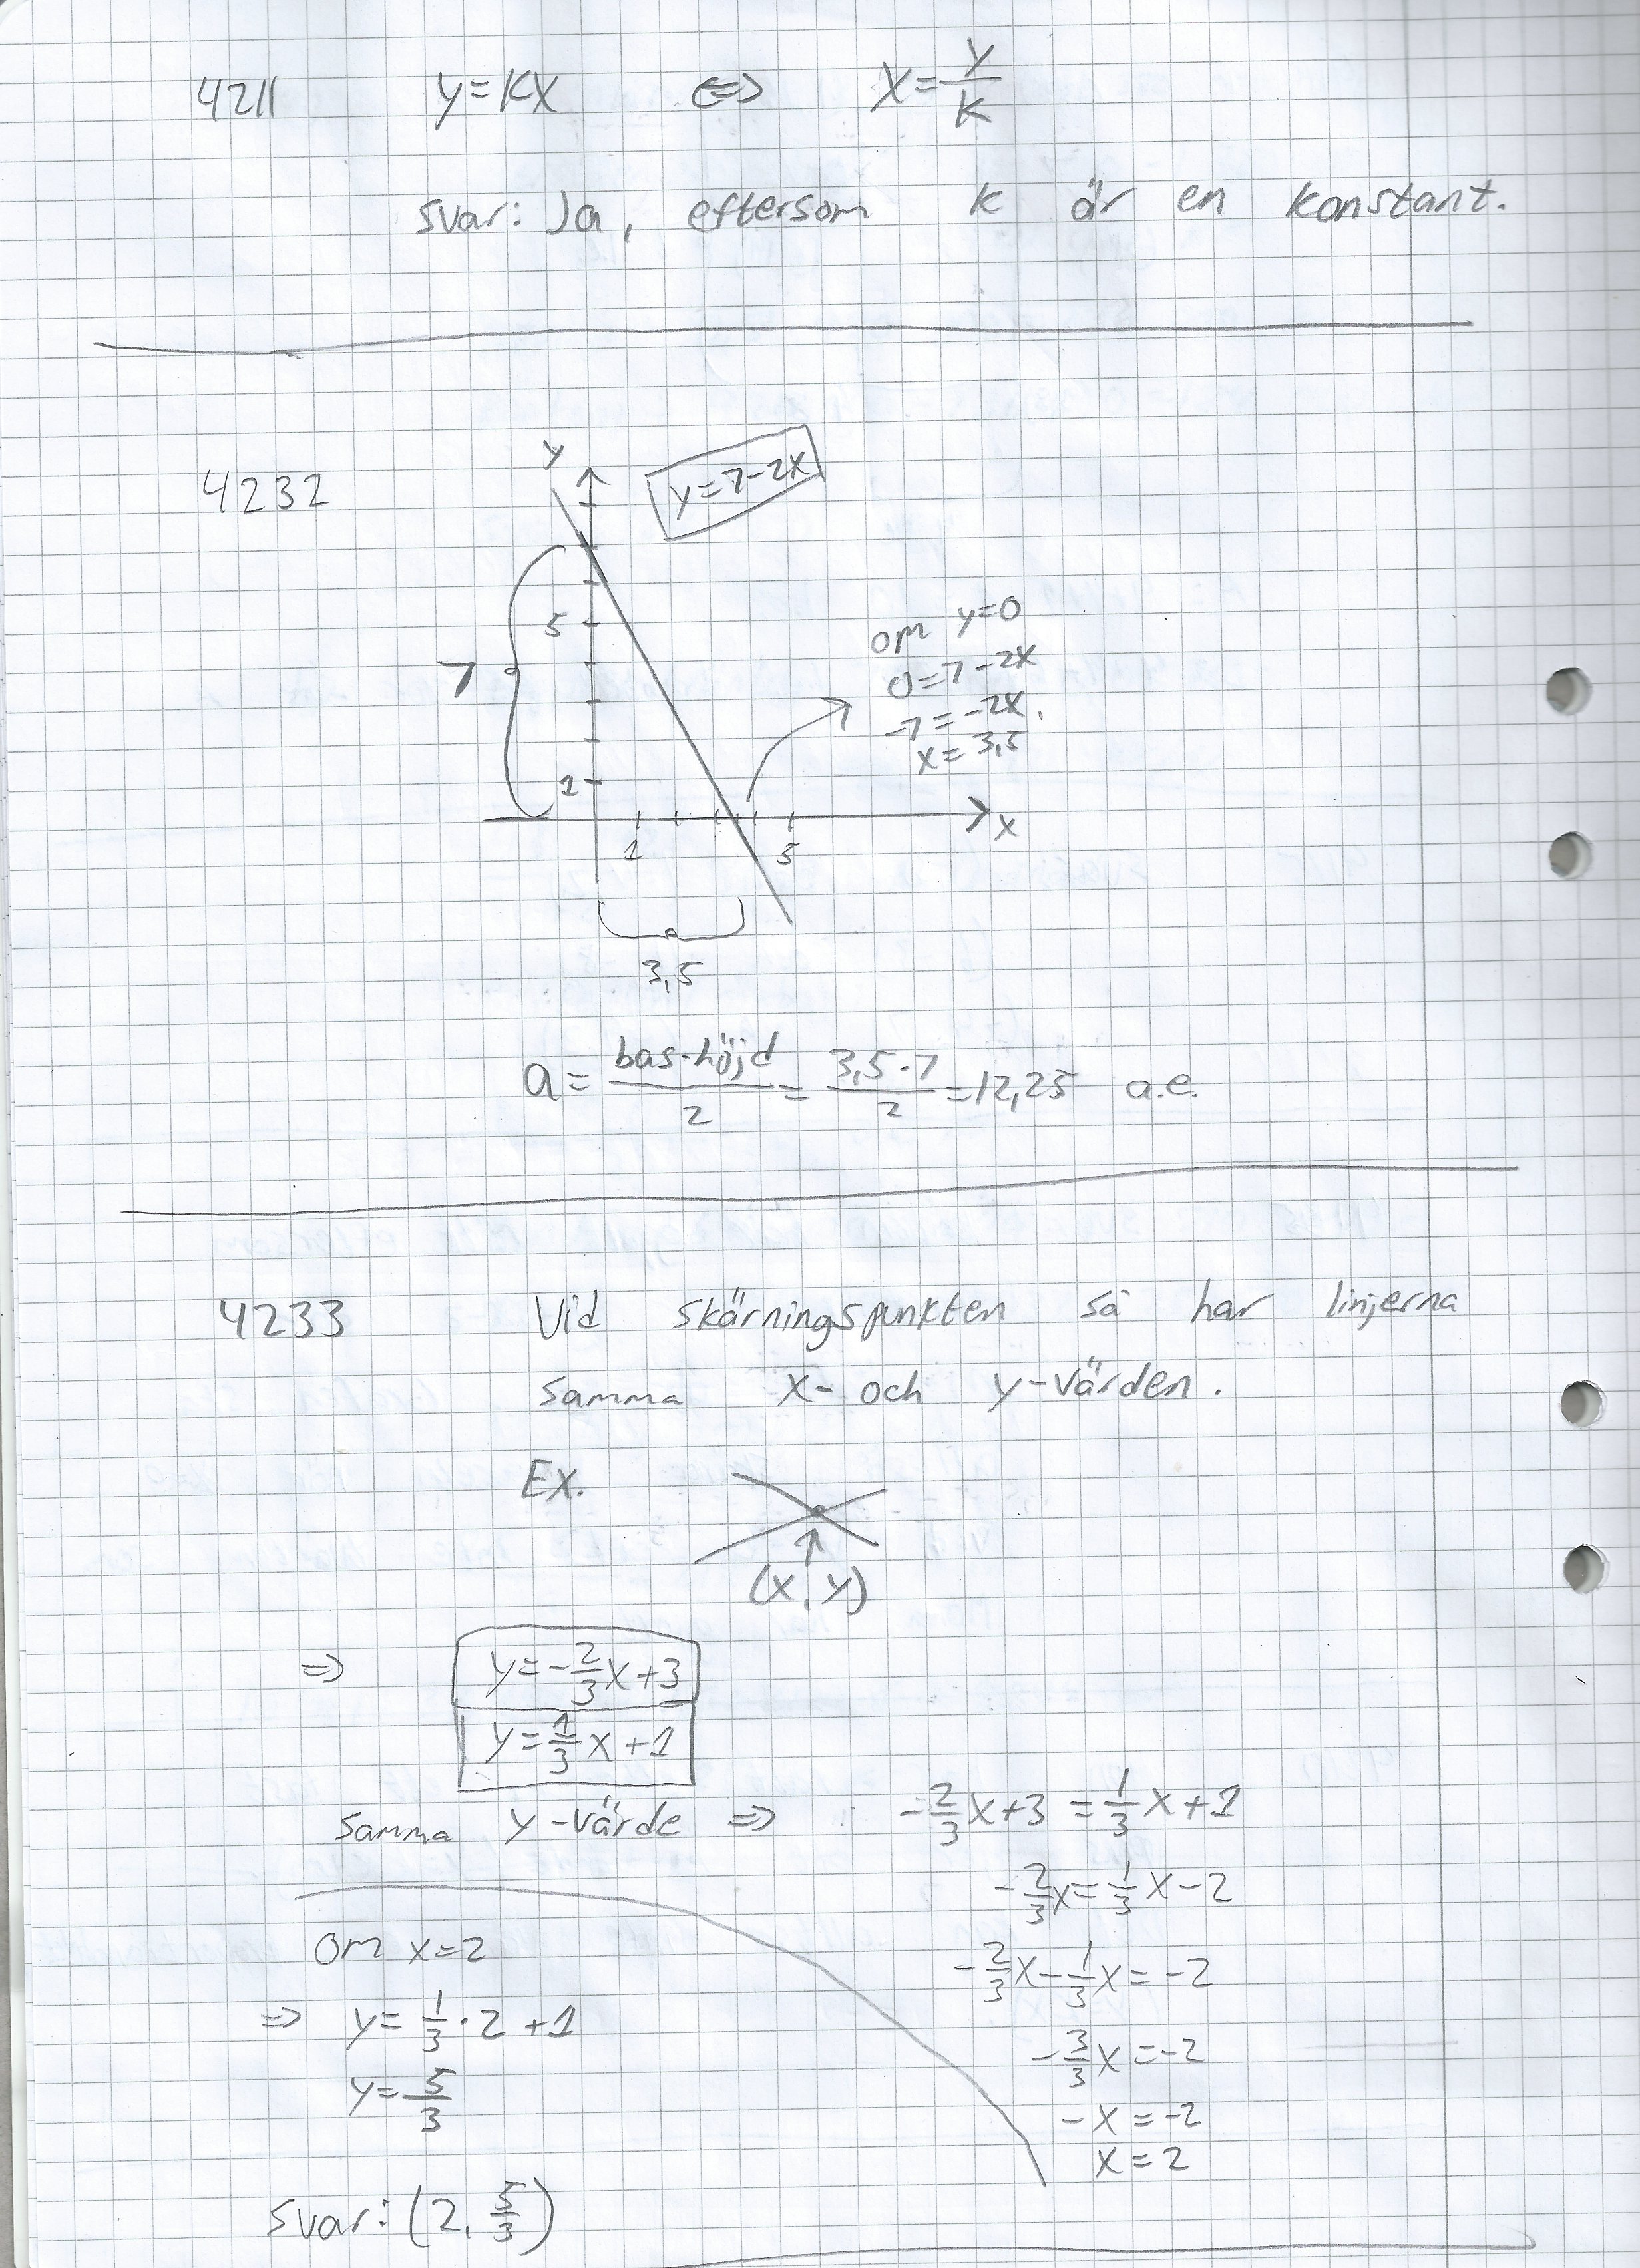 4211 y=kx <=> x=y/k
svar: Ja, eftersom k är en konstant.
4232
y
y=7-2x
5
7
1
1 5 x
3,5
om y=0
0=7-2x
-7=-2x.
x=3,5
a= bas·höjd/2 = 3,5·7/2 =12,25 a.e.
4233 Vid skärningspunkten så har linjerna
samma x- och y-värden.
Ex.
(x, y)
=> y=-2/3x+3
y=1/3x+1
samma y-värde => -2/3x+3=1/3x+1
-2/3x=1/3x-2
-2/3x-1/3x=-2
-3/3x=-2
-x=-2
x=2
Om x=2
=> y=1/3·2+1
y=5/3
svar: (2, 5/3)